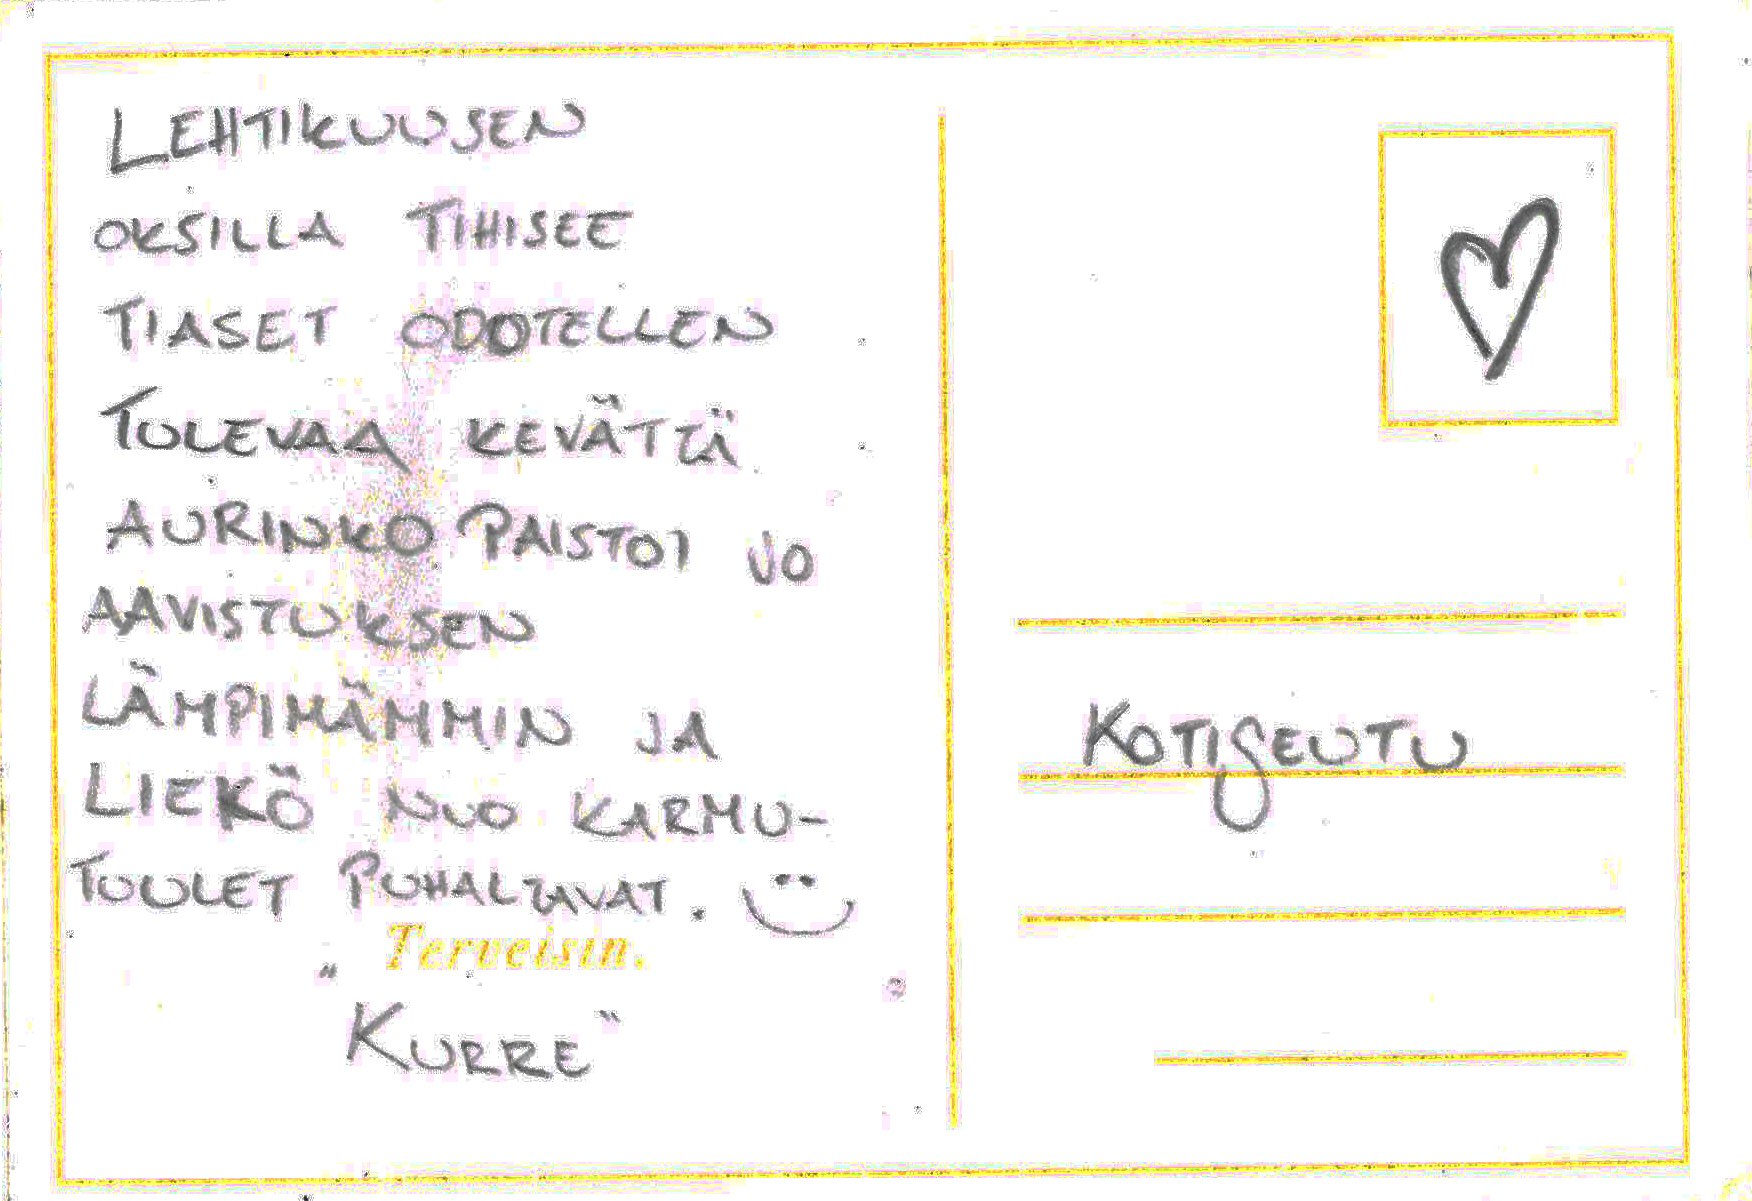 LEHTIKUUSEN
OKSILLA TIHISEE
TIASET ODOTELLEN
TULEVAA KEVÄTTÄ
AURINKO PAISTOI JO
AAVISTUKSEN
LÄMPIMÄMMIN JA
LIEKÖ NUO KARMU-
TUULET PUHALTAVAT.
Terveisin,
"KURRE"
KOTISEUTU